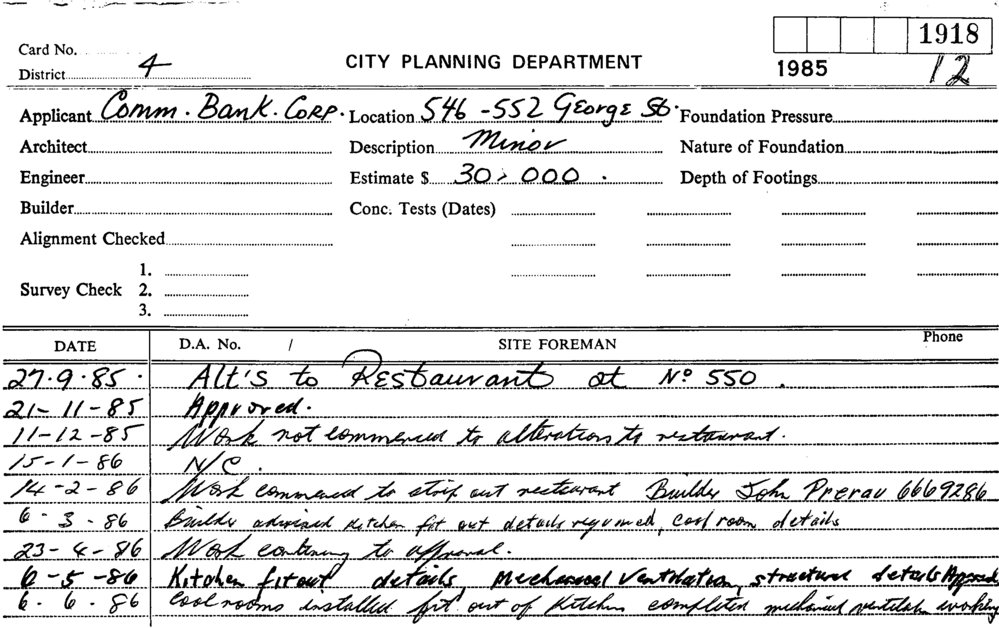 1918
Card No.
District 4
CITY PLANNING DEPARTMENT
1985
12
Applicant Comm. Bank. Corp. Location 546-552 George St. Foundation Pressure
Architect Description Minor Nature of Foundation
Engineer Estimate $ 30,000. Depth of Footings
Builder Conc. Tests (Dates)
Alignment Checked
1.
Survey Check 2.
3.
DATE D.A. No. / SITE FOREMAN Phone
27.9.85. Alt's to Restaurant at No 550.
21-11-85 Approved.
11-12-85 Work not commenced to alterations to restaurant.
15-1-86 N/C.
14-2-86 Work commenced to strip out restaurant Builder John Prerau 6669286
6-3-86 Builder advised kitchen fit out details required, cool room details
23-4-86 Work continuing to approval.
6-5-86 Kitchen fitout details, Mechanical Ventilation, structural details Approved
6.6.86 Cool rooms installed fit out of kitchen completed mechanical ventilation working